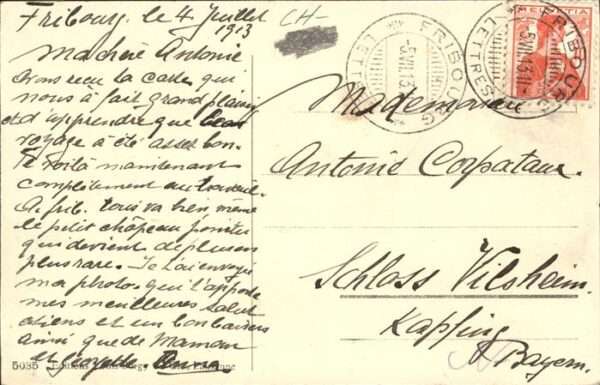 Fribourg. le 4 Juillet
1913
CH-
Ma chère Antonie
Avons recu la carte qui
nous à fait grand plaisir
et d'apprendre que
voyage à été assez bon.
Te voilà maintenant
complètement au travail.
A frib. tout va bien même
le petit châpeau pointu
qui devient de plus en
plus rare. Je t'ai envoyé
ma photo. qui t'apporte
mes meilleures salut
ations et un bon baiser
ainsi que de Maman
et
5035
FRIBOURG
-5.VII.13
LETTRES
HELVETIA
FRIBOURG
-5.VII.13.11-
LETTRES
Mademoiselle
Antonie Corpataux
Schloss Vilsheim.
Kapfing
Bayern.